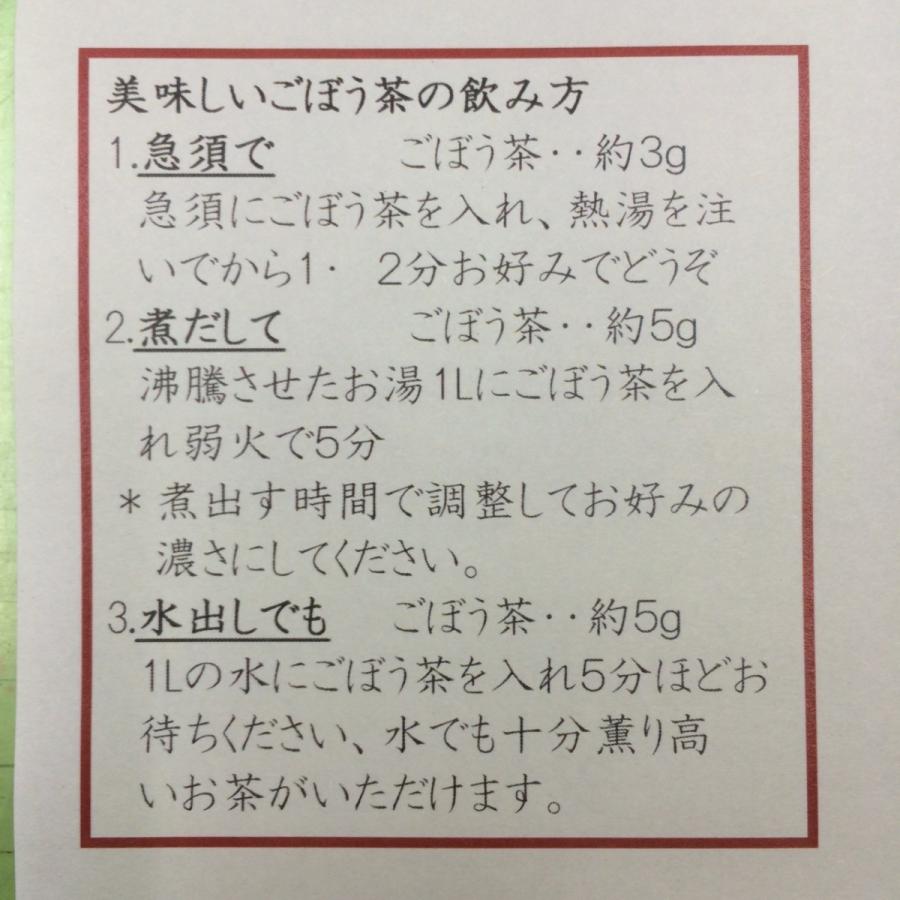 美味しいごぼう茶の飲み方
1.急須で ごぼう茶・・約3g
急須にごぼう茶を入れ、熱湯を注
いでから1・ 2分お好みでどうぞ
2.煮だして ごぼう茶・・約5g
沸騰させたお湯1Lにごぼう茶を入
れ弱火で5分
＊煮出す時間で調整してお好みの
濃さにしてください。
3.水出しでも ごぼう茶・・約5g
1Lの水にごぼう茶を入れ5分ほどお
待ちください、水でも十分薫り高
いお茶がいただけます。